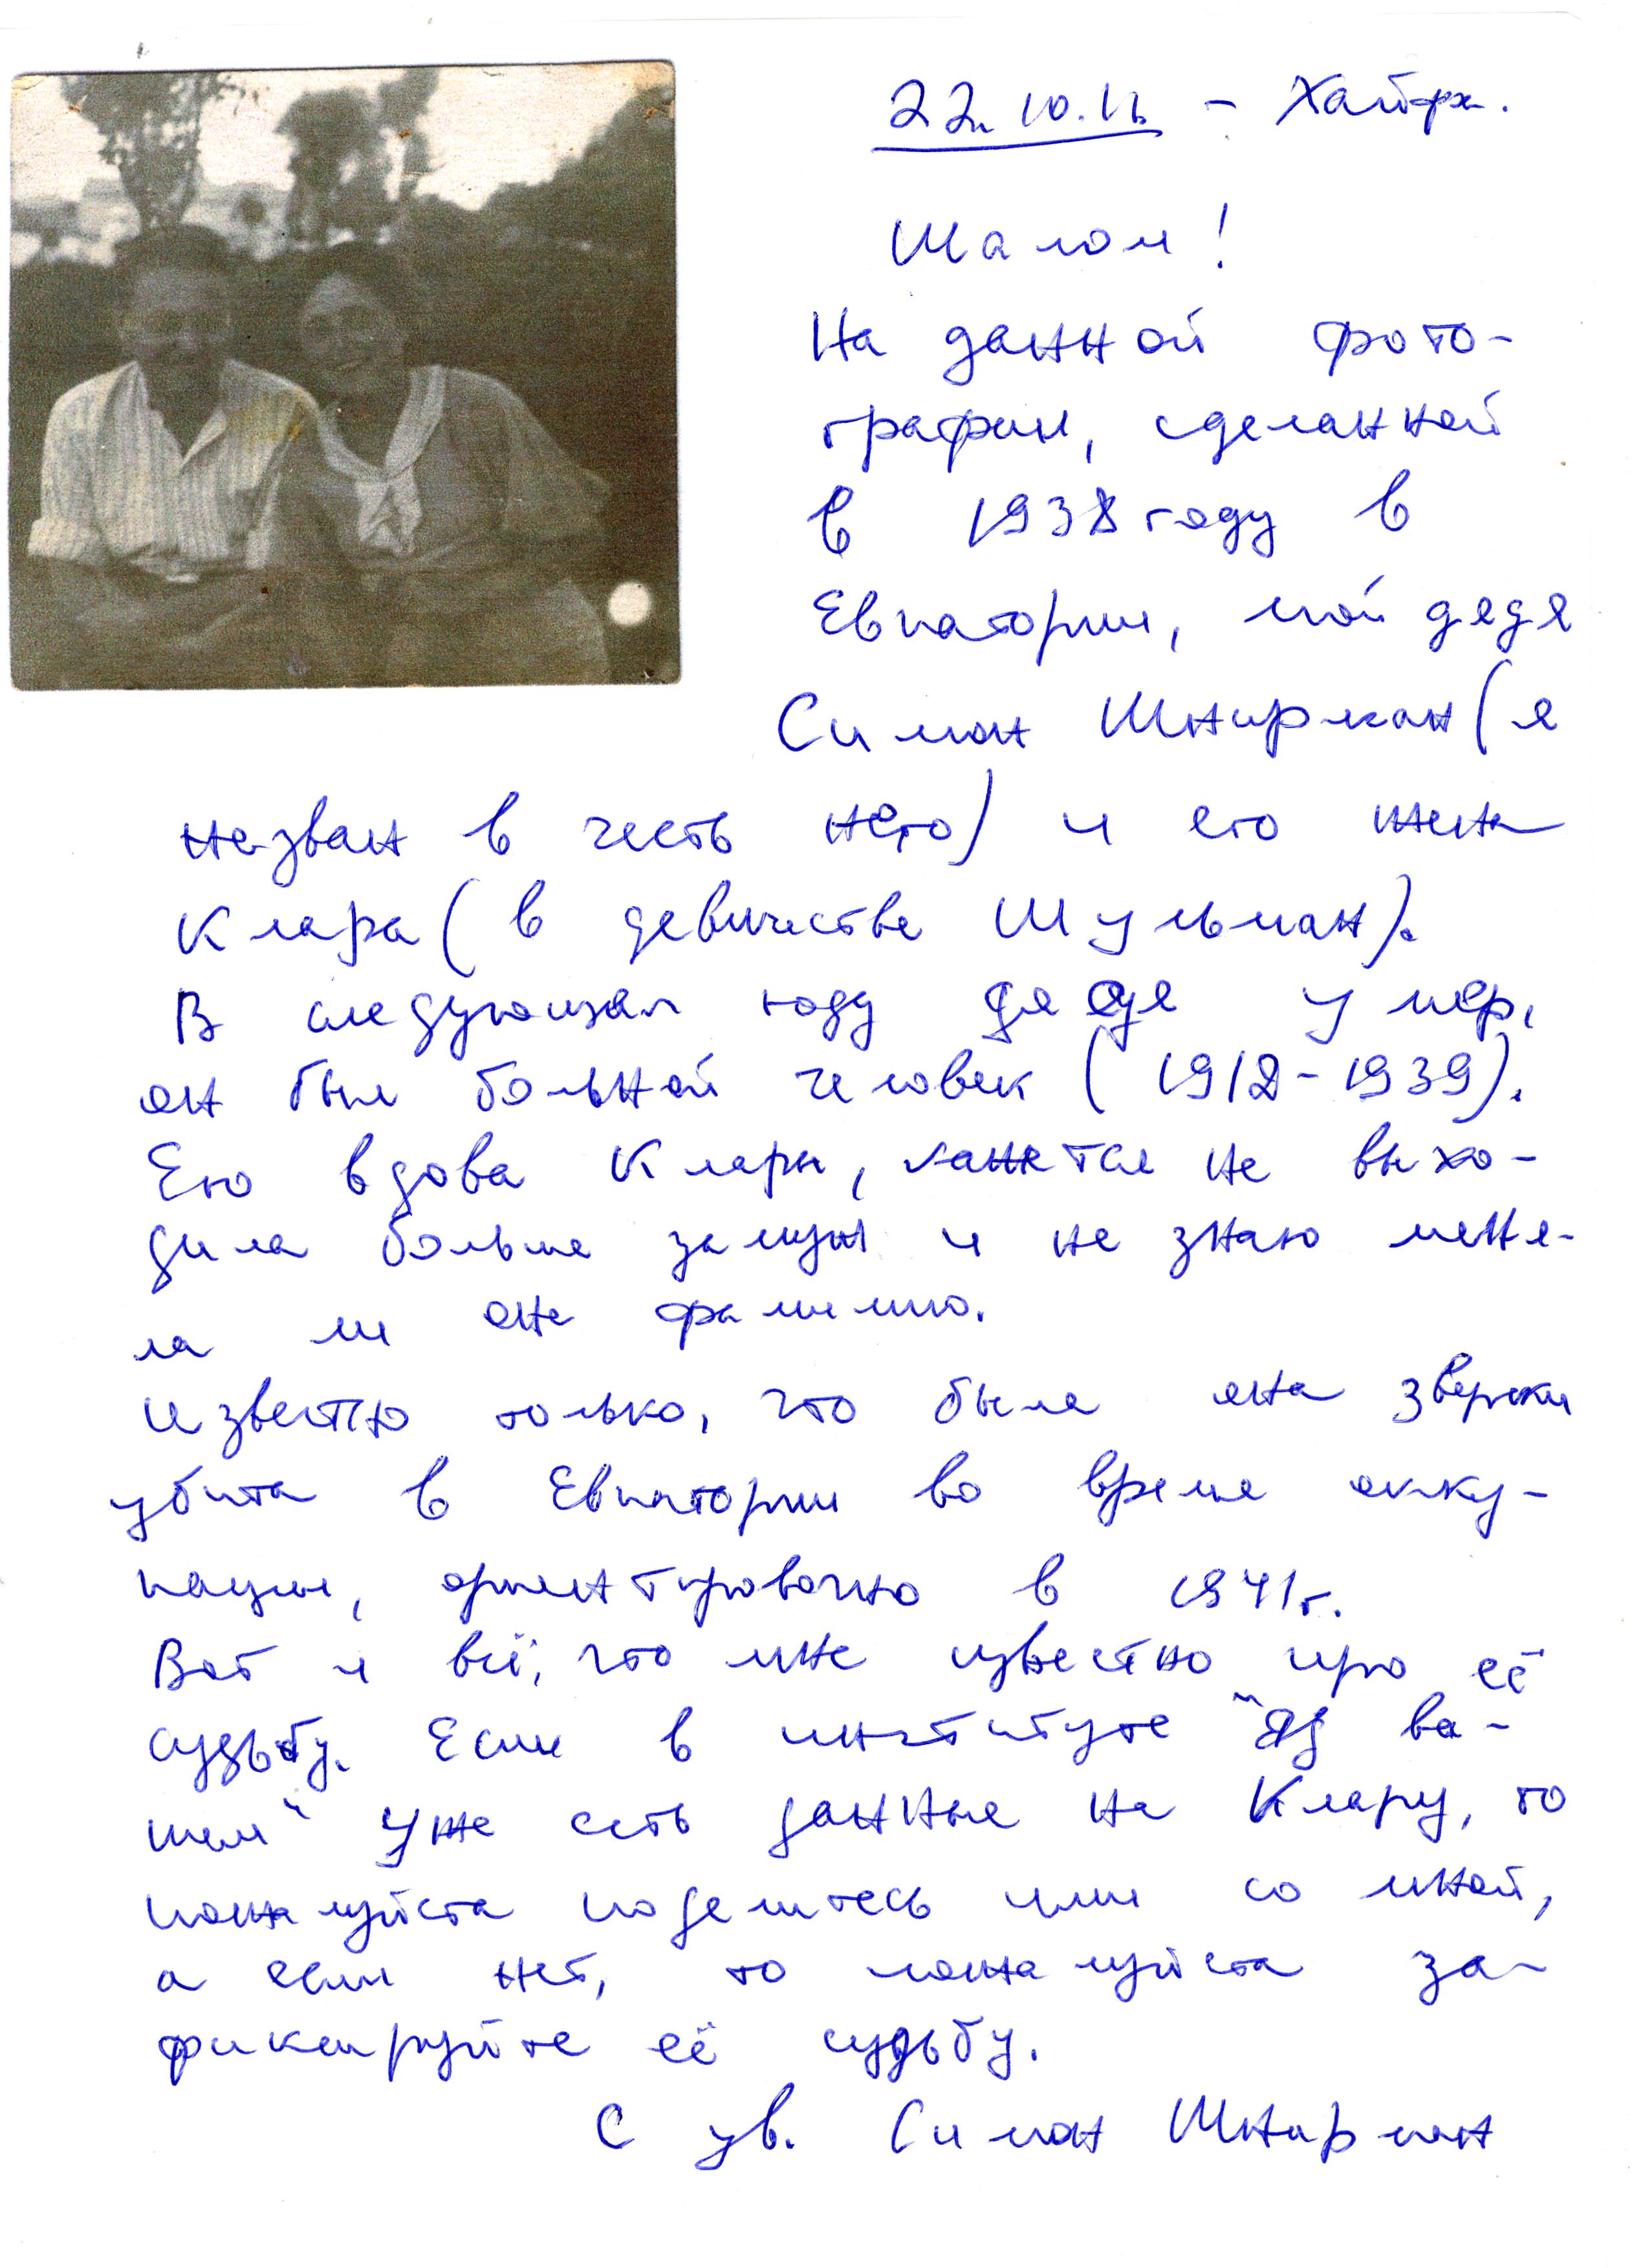 22.10.11 – Хайфа.
Шалом!
На данной фото-
графии, сделанной
в 1938 году в
Евпатории, мой дядя
Симон Шнирман (я
назван в честь него) и его жена
Клара (в девичестве Шульман).
В следующем году дядя умер,
он был больной человек (1912-1939).
Его вдова Клара, кажется не выхо-
дила больше замуж и не знаю меня-
ла ли она фамилию.
Известно только, что была она зверски
убита в Евпатории во время окку-
пации, ориентировочно в 1941г.
Вот и всё, что мне известно про её
судьбу. Если в институте "Яд ва-
шем" уже есть данные на Клару, то
пожалуйста поделитесь ими со мной,
а если нет, то пожалуйста за-
фиксируйте её судьбу.
С ув. Симон Шнирман